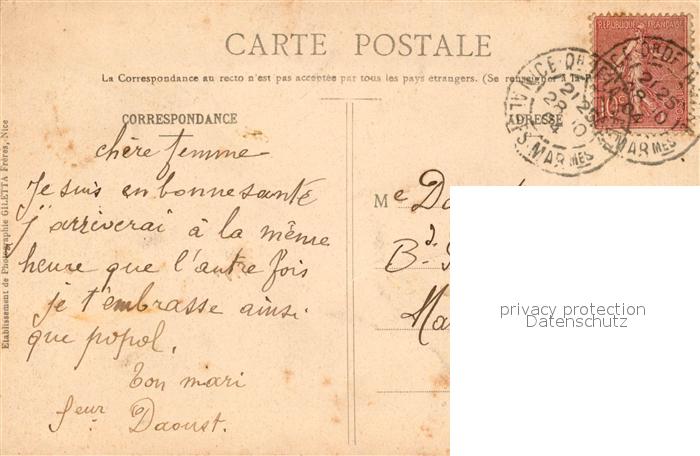 CARTE POSTALE
La Correspondance au recto n'est pas acceptée par tous les pays étrangers. (Se renseigner à la
CORRESPONDANCE
ADRESSE
chère femme
Je suis en bonne santé
j'arriverai à la même
heure que l'autre fois
je t'embrasse ainsi
que popol.
Ton mari
Daoust.
Me Da
Bd.
Ma
REPUBLIQUE FRANÇAISE
10c
NICE
21 25
28 10
04
ALPES MARMES
21 25
10
04
MARMES
Etablissement de Photographie GILETTA Frères, Nice
privacy protection
Datenschutz